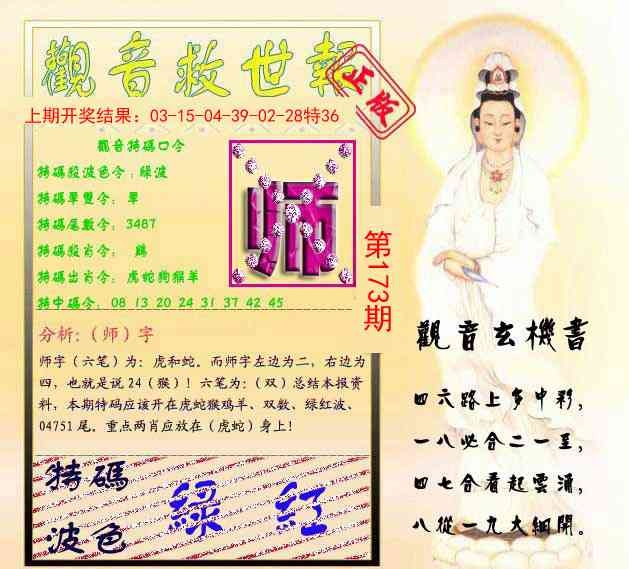 觀音救世報
正版
上期开奖结果：03-15-04-39-02-28特36
觀音特碼口令
特碼殺波色令：綠波
特碼單雙令： 單
特碼尾數令： 3487
特碼殺肖令： 鷄
特碼出肖令： 虎蛇狗猴羊
特中碼令： 08 13 20 24 31 37 42 45
师
第173期
分析:（师）字
师字（六笔）为：虎和蛇。而师字左边为二，右边为
四，也就是说 24（猴）！六笔为：（双）总结本报资
料，本期特码应该开在虎蛇猴鸡羊、双数、绿红波、
04751 尾。重点两肖应放在（虎蛇）身上！
特碼
波色
綠 紅
觀音玄機書
四六路上多中彩，
一八必合二一至，
四七合看起雲涌，
八從一九大細開。